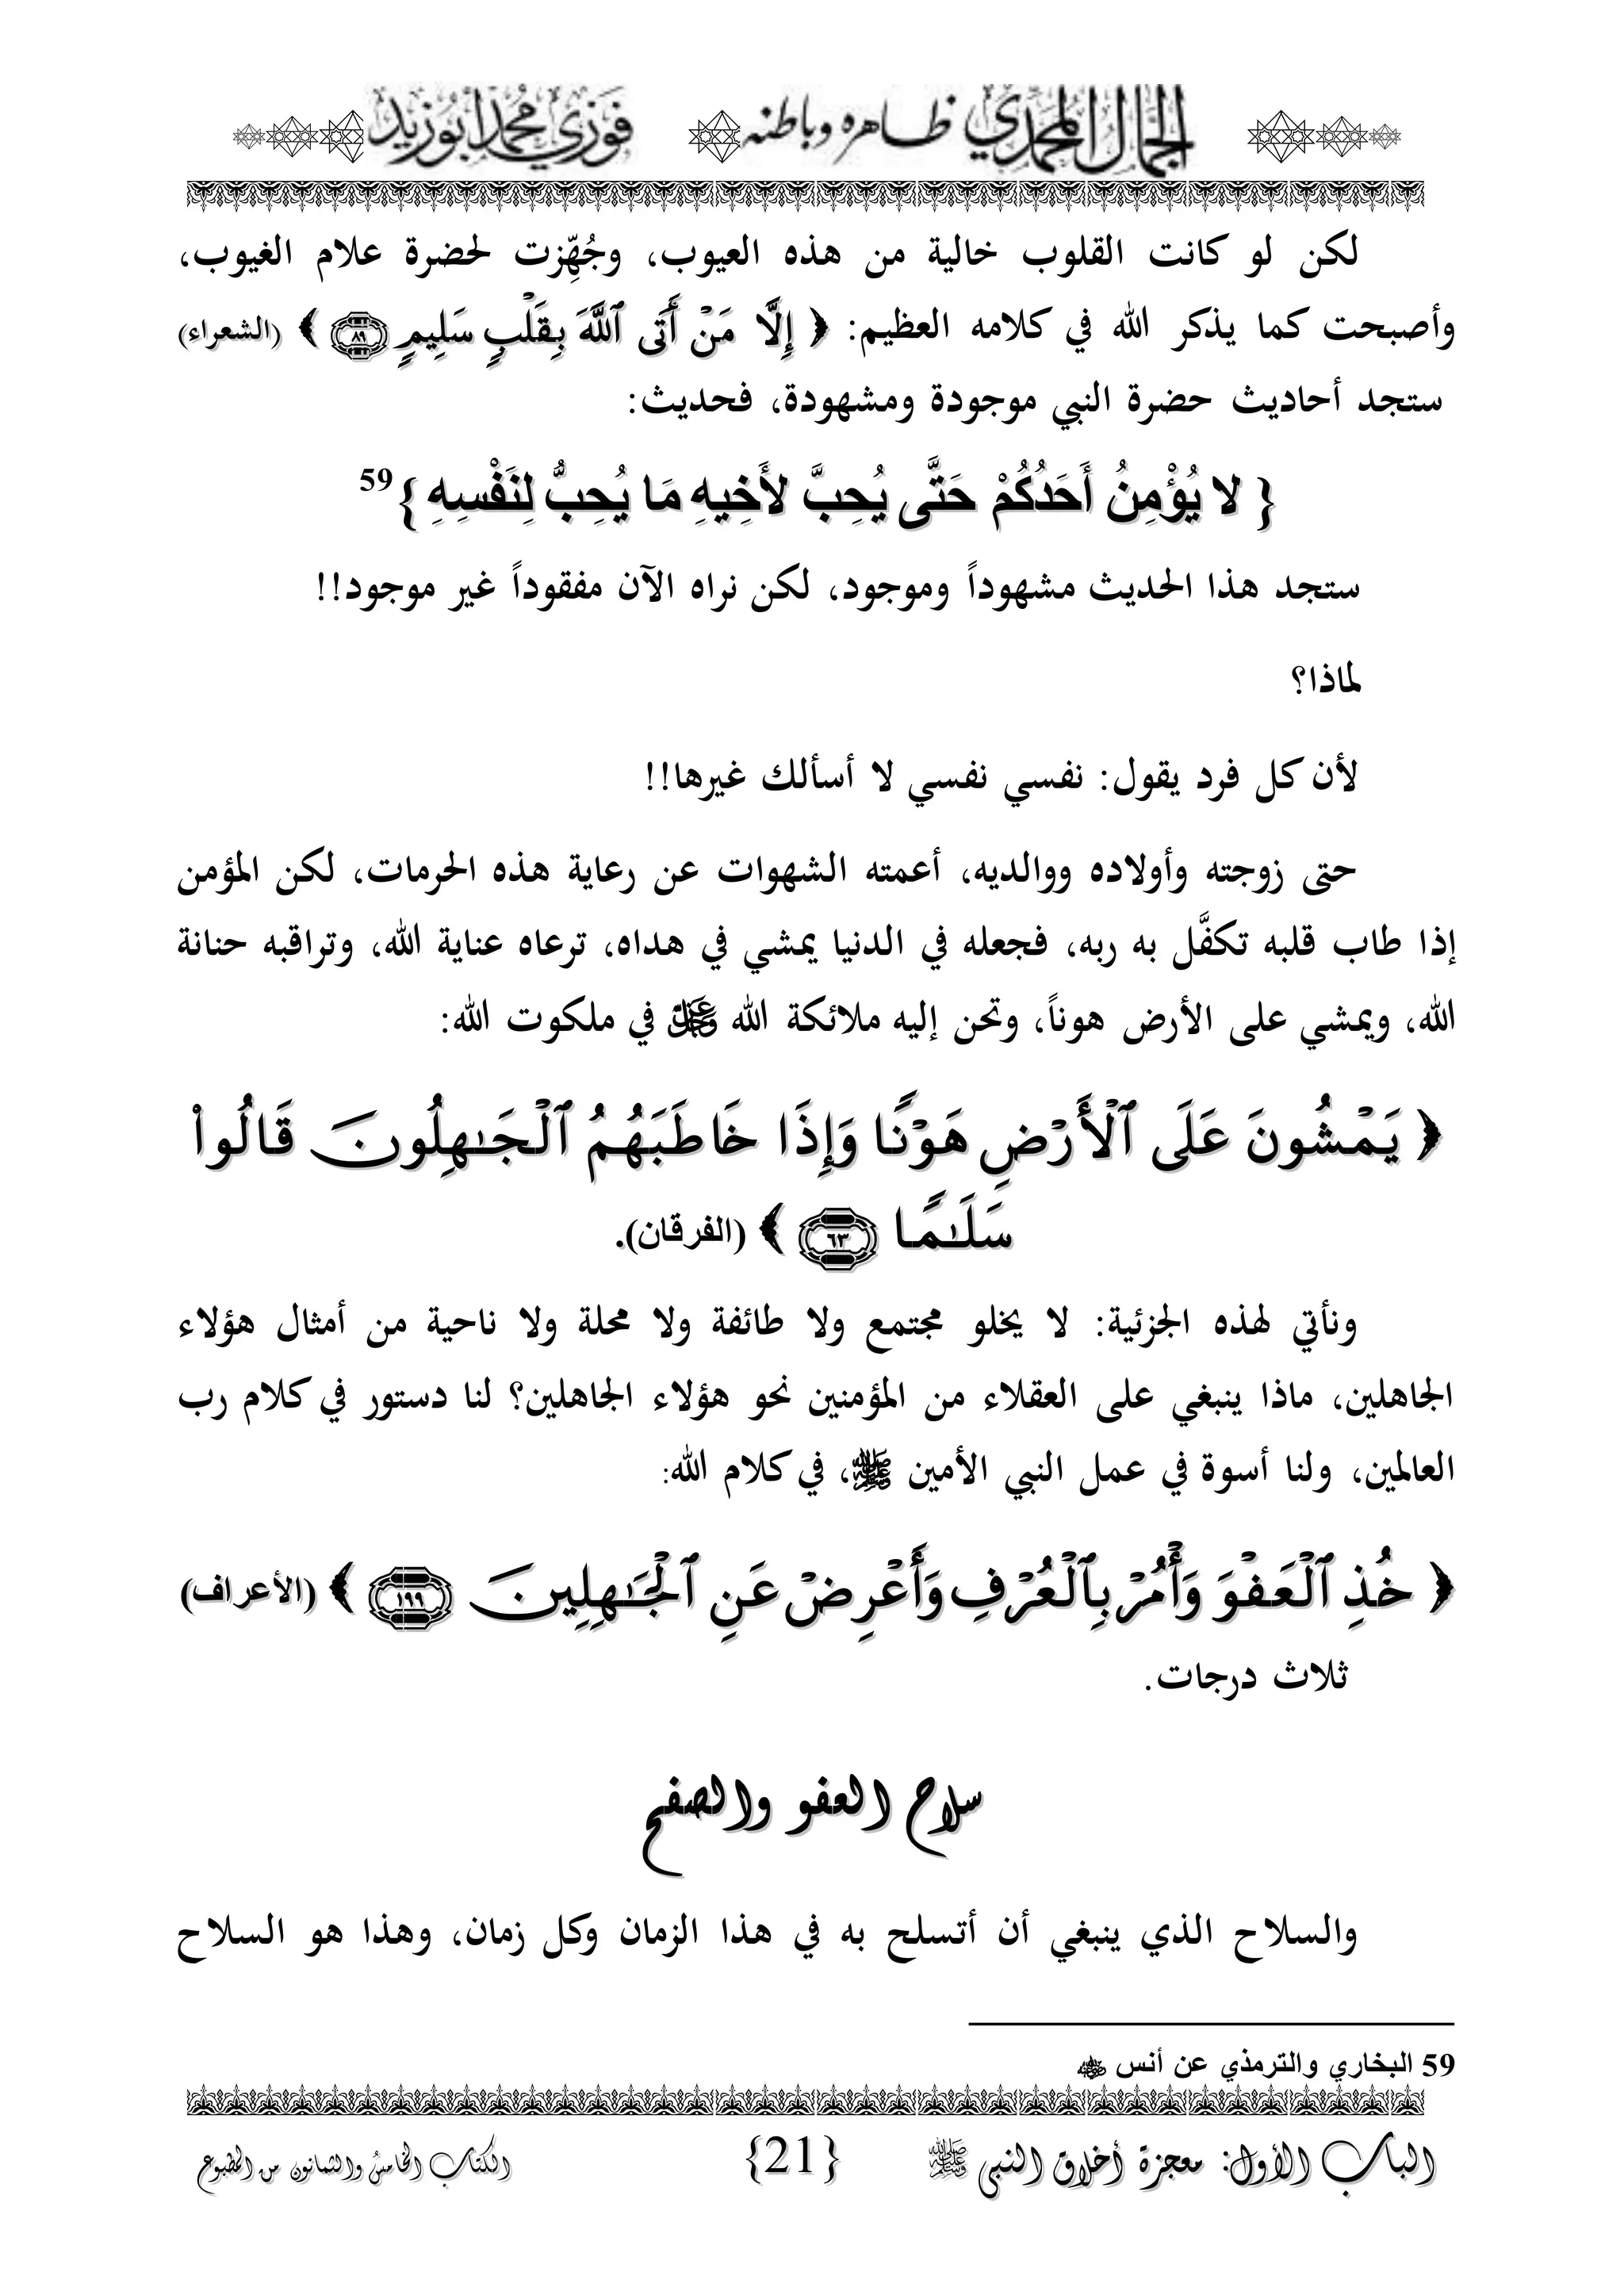 الجمال المحمدي ظاهره وباطنه فوزي محمد أبوزيد
لكن لو كانت القلوب خالية من هذه العيوب، وجُهِّزت لحضرة علام الغيوب،
وأصبحت كما يذكر الله في كلامه العظيم: ﴿ إِلَّا مَنْ أَتَى ٱللَّهَ بِقَلْبٍ سَلِيمٍ ٨٩ ﴾ (الشعراء)
ستجد أحاديث حضرة النبي موجودة ومشهودة، فحديث:
{ لا يُؤْمِنُ أَحَدُكُمْ حَتَّى يُحِبَّ لأَخِيهِ مَا يُحِبُّ لِنَفْسِهِ }59
ستجد هذا الحديث مشهوداً وموجود، لكن نراه الآن مفقوداً غير موجود!!
لماذا؟
لأن كل فرد يقول: نفسي نفسي لا أسألك غيرها!!
حتى زوجته وأولاده ووالديه، أعمته الشهوات عن رعاية هذه الحرمات، لكن المؤمن
إذا طاب قلبه تكفَّل به ربه، فجعله في الدنيا يمشي في هداه، ترعاه عناية الله، وتراقبه حنانة
الله، ويمشي على الأرض هوناً، وتحن إليه ملائكة الله عز وجل في ملكوت الله:
﴿ يَمْشُونَ عَلَى ٱلْأَرْضِ هَوْنًا وَإِذَا خَاطَبَهُمُ ٱلْجَـٰهِلُونَ قَالُوا۟
سَلَـٰمًا ٦٣ ﴾ (الفرقان).
ونأتي لهذه الجزئية: لا يخلو مجتمع ولا طائفة ولا محلة ولا ناحية من أمثال هؤلاء
الجاهلين، ماذا ينبغي على العقلاء من المؤمنين نحو هؤلاء الجاهلين؟ لنا دستور في كلام رب
العالمين، ولنا أسوة في عمل النبي الأمين ﷺ، في كلام الله:
﴿ خُذِ ٱلْعَفْوَ وَأْمُرْ بِٱلْعُرْفِ وَأَعْرِضْ عَنِ ٱلْجَـٰهِلِينَ ١٩٩ ﴾ (الأعراف)
ثلاث درجات.
سلاح العفو والصفح
والسلاح الذي ينبغي أن أتسلح به في هذا الزمان وكل زمان، وهذا هو السلاح
59 البخاري والترمذي عن أنس رضي الله عنه
الباب الأول: معجزة أخلاق النبي ﷺ {21} الكتاب الخامس والثمانون من المطبوع